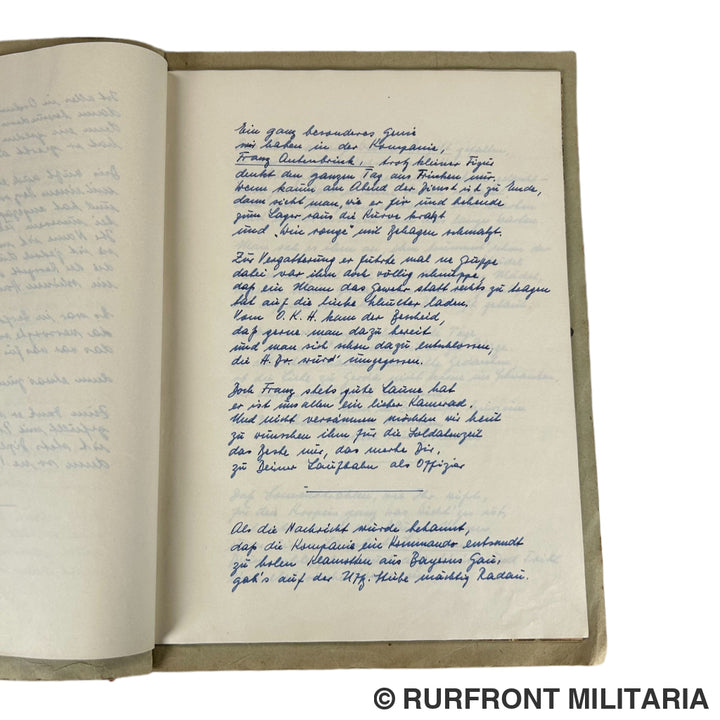 Ein ganz besonderes Genie
wir haben in der Kompanie,
Franz Autenbrink, trotz kleiner Figur
denkt den ganzen Tag ans Trinken nur.
Wenn kaum am Abend der Dienst ist zu Ende,
dann sieht man, wie er fix und behende
zum Lager raus die Kurve kratzt
und „Vin rouge" mit Behagen schmatzt.
Zur Vergatterung er führte mal ne Gruppe
dabei war ihm doch völlig schnuppe,
daß ein Mann das Gewehr statt rechts zu tragen
hat auf die linke Schulter laden.
Vom O.K.H. kam der Bescheid,
daß gerne man dazu bereit
und man sich schon dazu entschlossen,
die H.Dv. würd' umgegossen.
Doch Franz stets gute Laune hat
er ist uns allen ein lieber Kamerad.
Und nicht versäumen möchten wir heut
zu wünschen ihm für die Soldatenzeit
das Beste nur, das merke Dir,
zu Deiner Laufbahn als Offizier
Als die Nachricht wurde bekannt,
daß die Kompanie ein Kommando entsandt
zu holen Klamotten aus Bayerns Gau,
gab's auf der Uffz. Stube mächtig Radau.
© RURFRONT MILITARIA